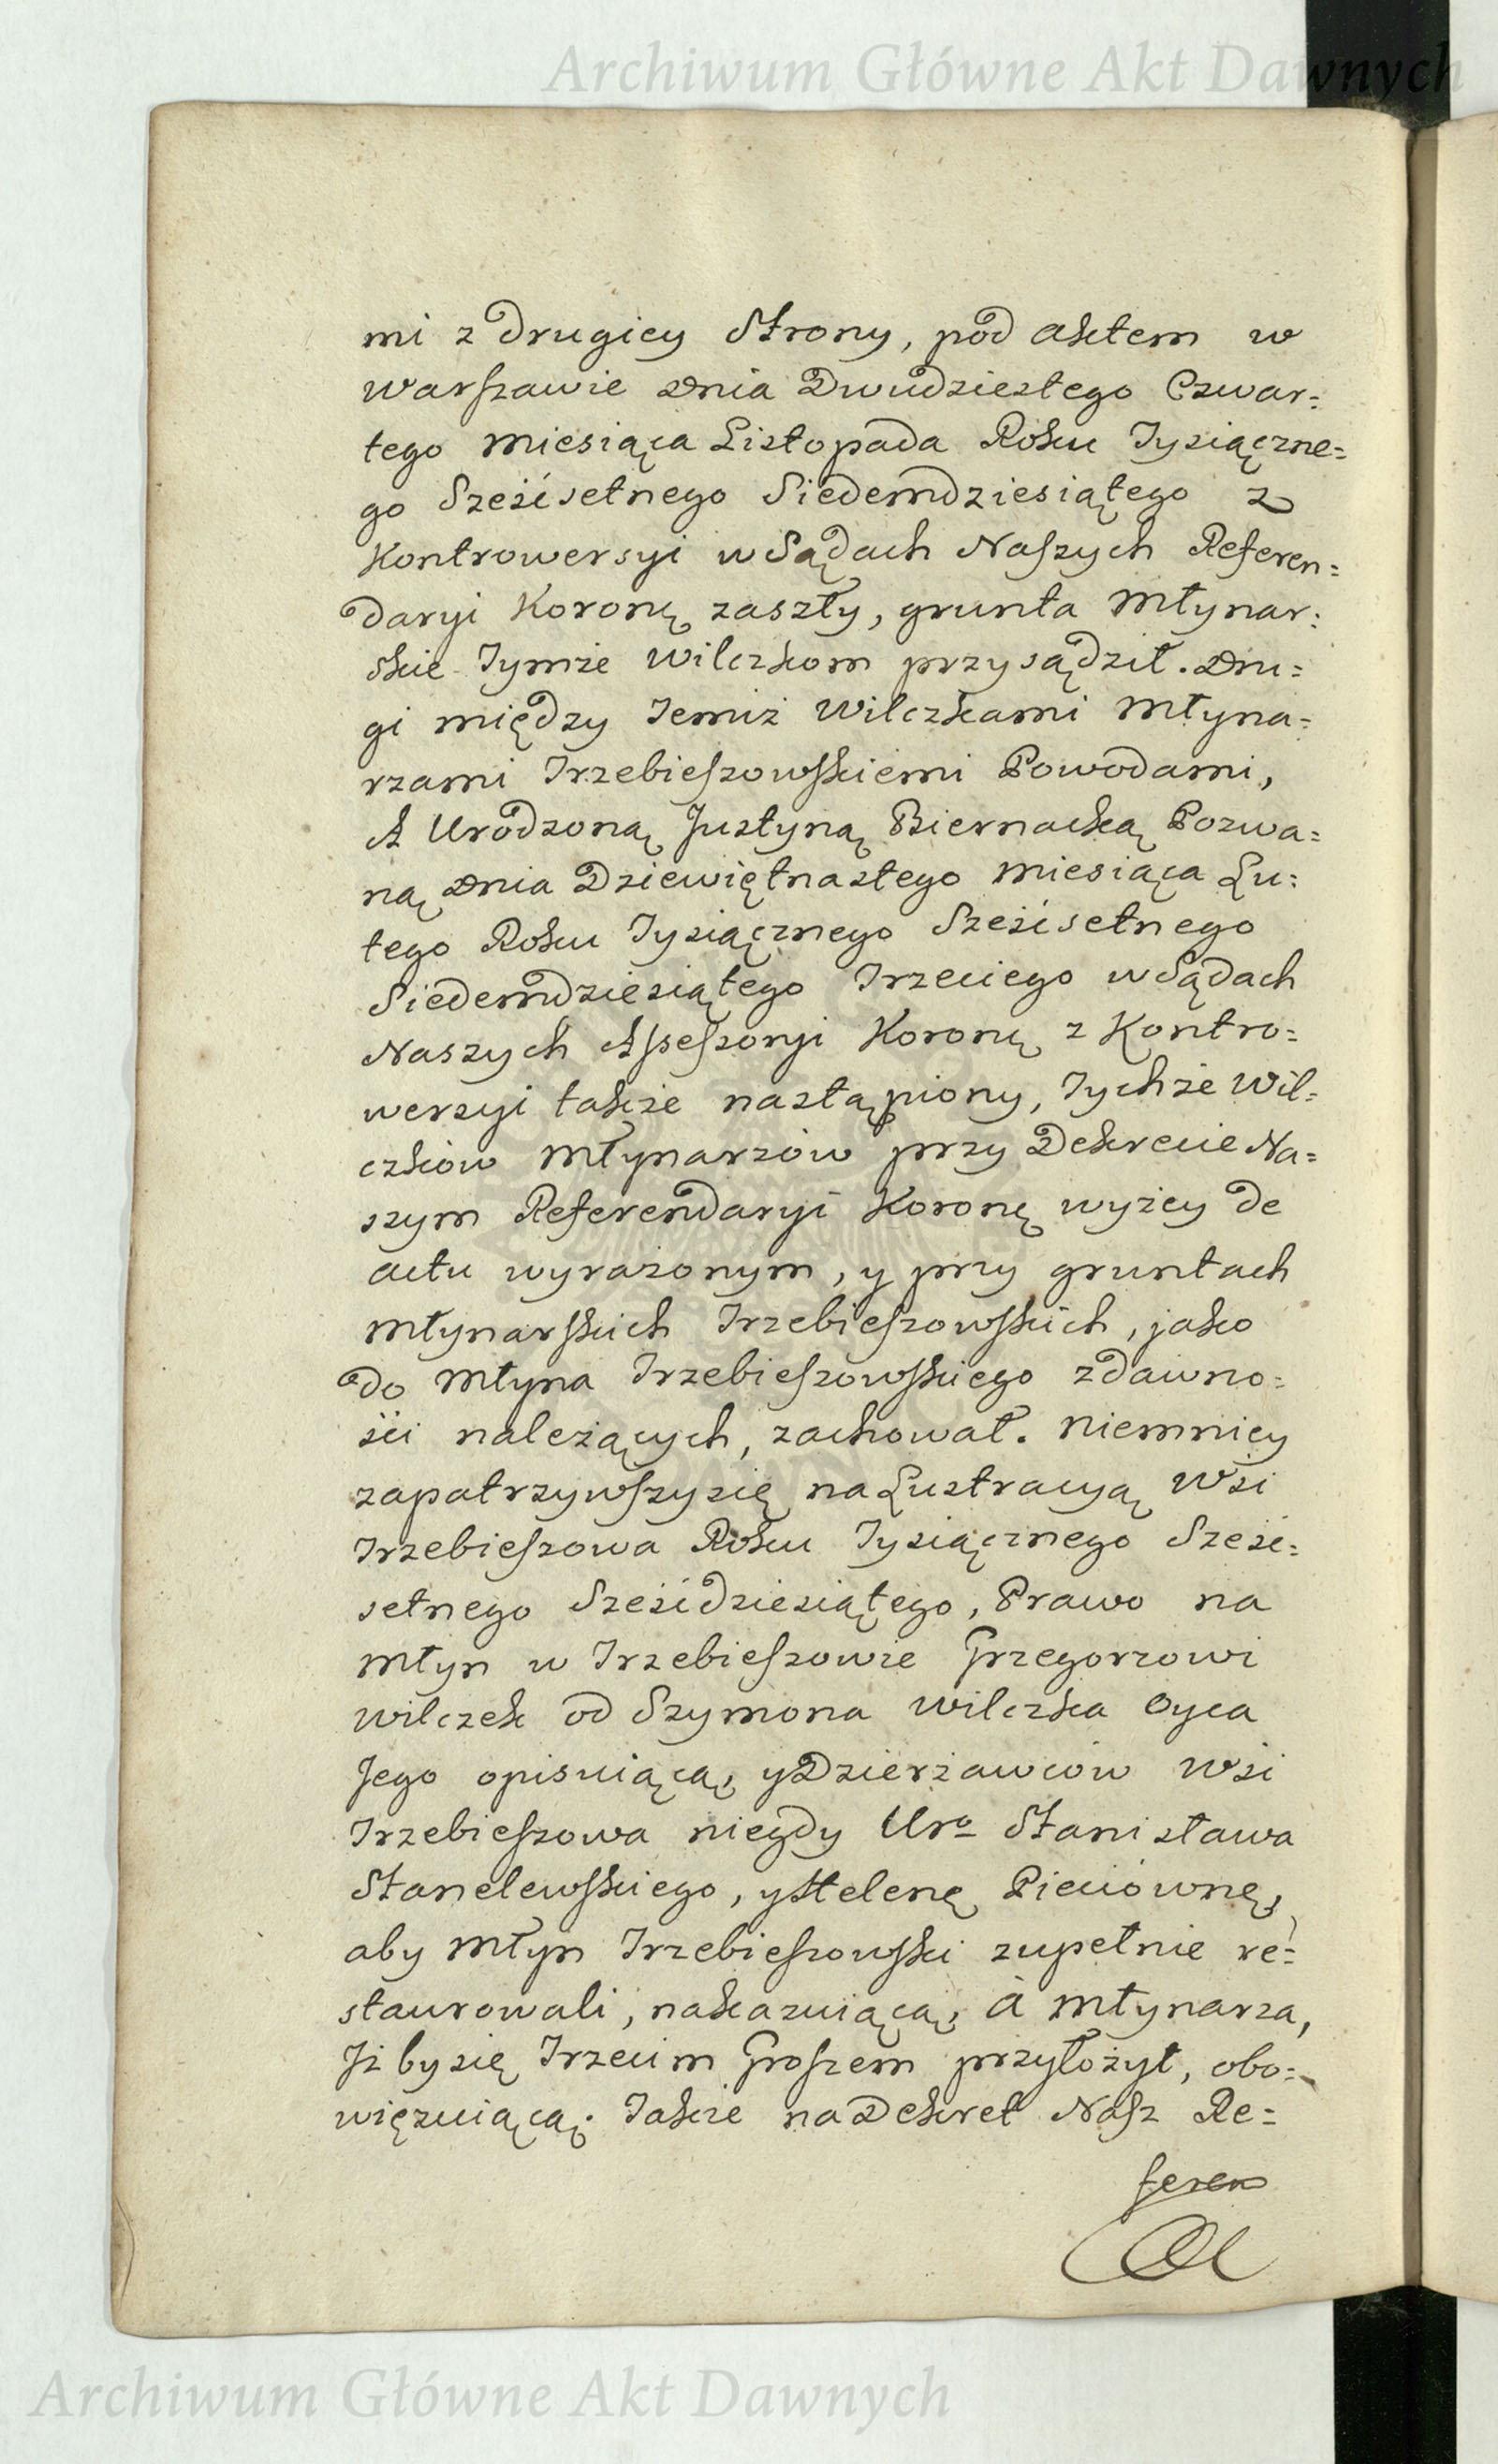 Archiwum Główne Akt Dawnych
mi z drugiey Strony, pod aktem w
Warszawie Dnia Dwudziestego Czwar=
tego Miesiąca Listopada Roku Tysiączne=
go Sześćsetnego Siedemdziesiątego z
Kontrowersyi w Sądach Naszych Referen=
daryi Koronę zaszły, grunta Młynar=
skie Tymże Wilczkom przysądził. Dru=
gi między Temiż Wilczkami Młyna=
rzami Trzebieszowskiemi Powodami,
A Urodzoną Justyną Biernacką Pozwa=
ną Dnia Dziewiętnastego Miesiąca Lu=
tego Roku Tysiącznego Sześćsetnego
Siedemdziesiątego Trzeciego w Sądach
Naszych Assessoryi Koronę z Kontro=
wersyi także nastąpiony, Tychże Wil=
czków Młynarzów przy Dekrecie Na=
szym Referendaryi Koronę wyżey de
actu wyrażonym, y przy gruntach
Młynarskich Trzebieszowskich, jako
do Młyna Trzebieszowskiego zdawno=
ści należących, zachował. Niemniey
zapatrzywszy się na Lustracyą Wsi
Trzebieszowa Roku Tysiącznego Sześć=
setnego Sześćdziesiątego, Prawo na
Młyn w Trzebieszowie Grzegorzowi
Wilczek od Szymona Wilczka Oyca
Jego opisuiącą, y Dzierżawców Wsi
Trzebieszowa niegdy Uro Stanisława
Stanelewskiego, y Helenę Pieciównę,
aby Młyn Trzebieszowski zupełnie re=
staurowali, nakazuiącą, à Młynarza,
Jż by się Trzecim Groszem przyłożył, obo=
więzuiącą. Także na Dekret Nasz Re=
feren
Archiwum Główne Akt Dawnych